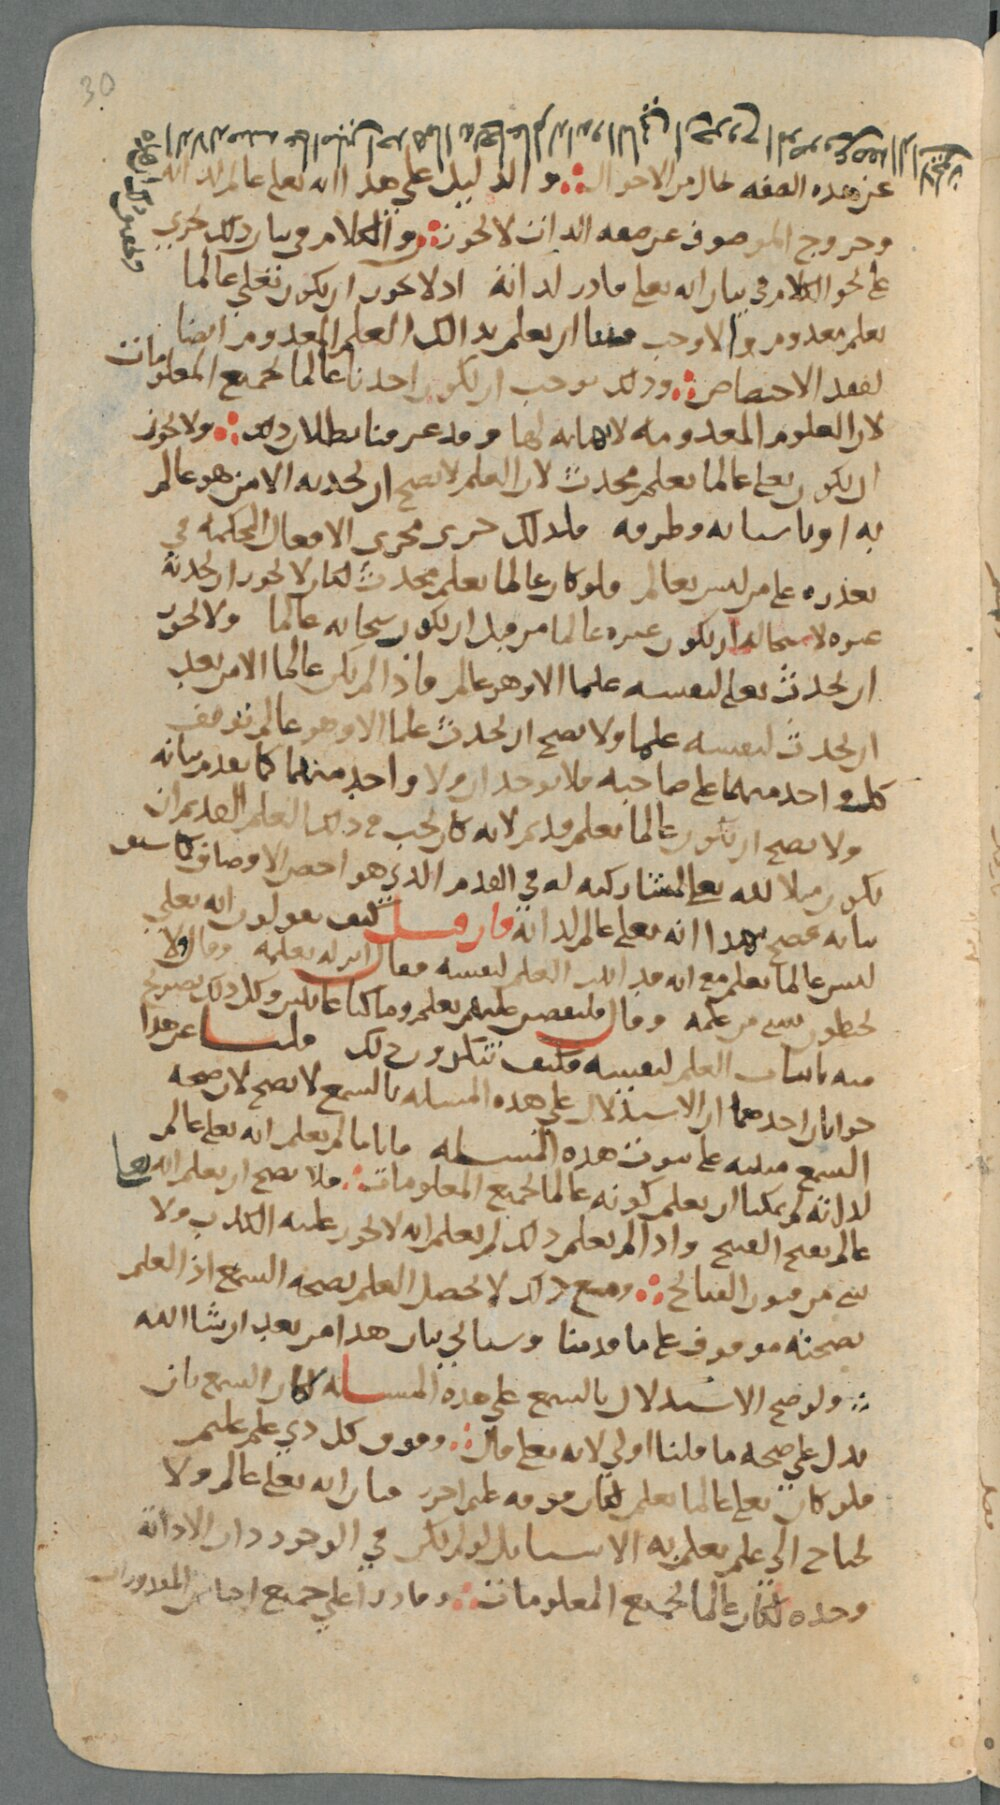 30
عن هذه الصفه بحال من الاحوال ∴ و الدليل على هذا انه تعلى عالم لذاته
وخروج الموصوف عن صفه الذات لا يجوز ∴ والكلام في بيان ذلك يجري
على نحو الكلام في بيان انه تعلى قادر لذاته اذ لا يجوز ان يكون تعلى عالما
بعلم معدوم والا وجب فينا ان نعلم بذالك العلم المعدوم ايضا
لفقد الاختصاص ∴ وذلك يوجب ان يكون احدنا عالما بجميع المعلومات
لان العلوم المعدومه لا نهايه لها وقد عرفنا بطلان ذلك ∴ ولا يجوز
ان يكون تعلى عالما بعلم محدث لان العلم لا يصح ان يحدثه الا من هو عالم
به او باسبابه وطرقه فلذلك جرى مجرى الافعال المحكمه في
تعذره على من ليس بعالم فلو كان عالما بعلم محدث لكان لا يجوز ان يحدثه
غيره لاستحاله ان يكون غيره عالما من قبل ان يكون سبحانه عالما ولا يجوز
ان يحدث تعلى لنفسه علما الا وهو عالم فاذا لم يكن عالما الا من بعد
ان يحدث لنفسه علما ولا يصح ان يحدث علما الا وهو عالم توقف
كل واحد منهما على صاحبه فلا يوجد ان ولا واحد منهما كما تقدم بيانه
ولا يصح ان يكون عالما بعلم قديم لانه كان يجب في ذلك العلم القديم ان
يكون مثلا لله تعالى لمشاركته له في القدم الذي هو اخص الاوصاف كما سبق
بيانه فصح بهذا انه تعلى عالم لذاته فان قيل كيف تقولون انه تعلى
ليس عالما بعلم مع انه قد اثبت العلم لنفسه فقال انزله بعلمه وقال ولا
يحيطون بشي من علمه وقال فلنقصن عليهم بعلم وما كنا غائبين وكل ذلك تصريح
منه باثبات العلم لنفسه فكيف تنكرون ذلك قلنا عن هذا
جوابان احدهما ان الاستدلال على هذه المسله بالسمع لا يصح لان صحه
السمع مبنيه على ثبوت هذه المسله فانا ما لم نعلم انه تعلى عالم
لذاته لم يمكنا ان نعلم كونه عالما بجميع المعلومات ∴ فلا يصح ان نعلم انه تعالى
عالم بقبح القبيح واذا لم نعلم ذلك لم نعلم انه لا يجوز عليه الكذب ولا
شي من فنون القبائح ∴ ومع ذلك لا يحصل العلم بصحه السمع اذ العلم
بصحته موقوف على ما قدمنا وسياتي بيان هذا من بعد ان شا الله
∴ ولو صح الاستدلال بالسمع على هذه المساله لكان السمع بان
يدل على صحه ما قلنا اولى لانه تعلى قال ∴ وفوق كل ذي علم عليم
فلو كان تعلى عالما بعلم لكان فوقه عليم اخر فبان انه تعلى عالم ولا
يحتاج الى علم يعلم به الاشيا بل لو لم يكن في الوجود ذات الا ذاته
وحده لكان عالما بجميع المعلومات ∴ وقادرا على جميع اجناس المقدورات